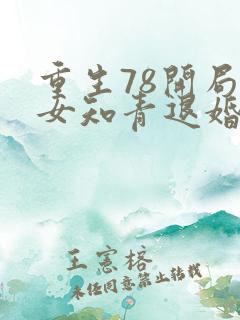 重生78開局
女知青退婚
王憲榕
未经同意禁止转载